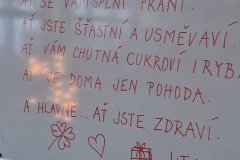 AŤ SE VÁM SPLNÍ PŘÁNÍ.
AŤ JSTE ŠŤASTNÍ A USMĚVAVÍ.
AŤ VÁM CHUTNÁ CUKROVÍ I RYBA
AŤ JE DOMA JEN POHODA.
A HLAVNĚ...AŤ JSTE ZDRAVÍ.